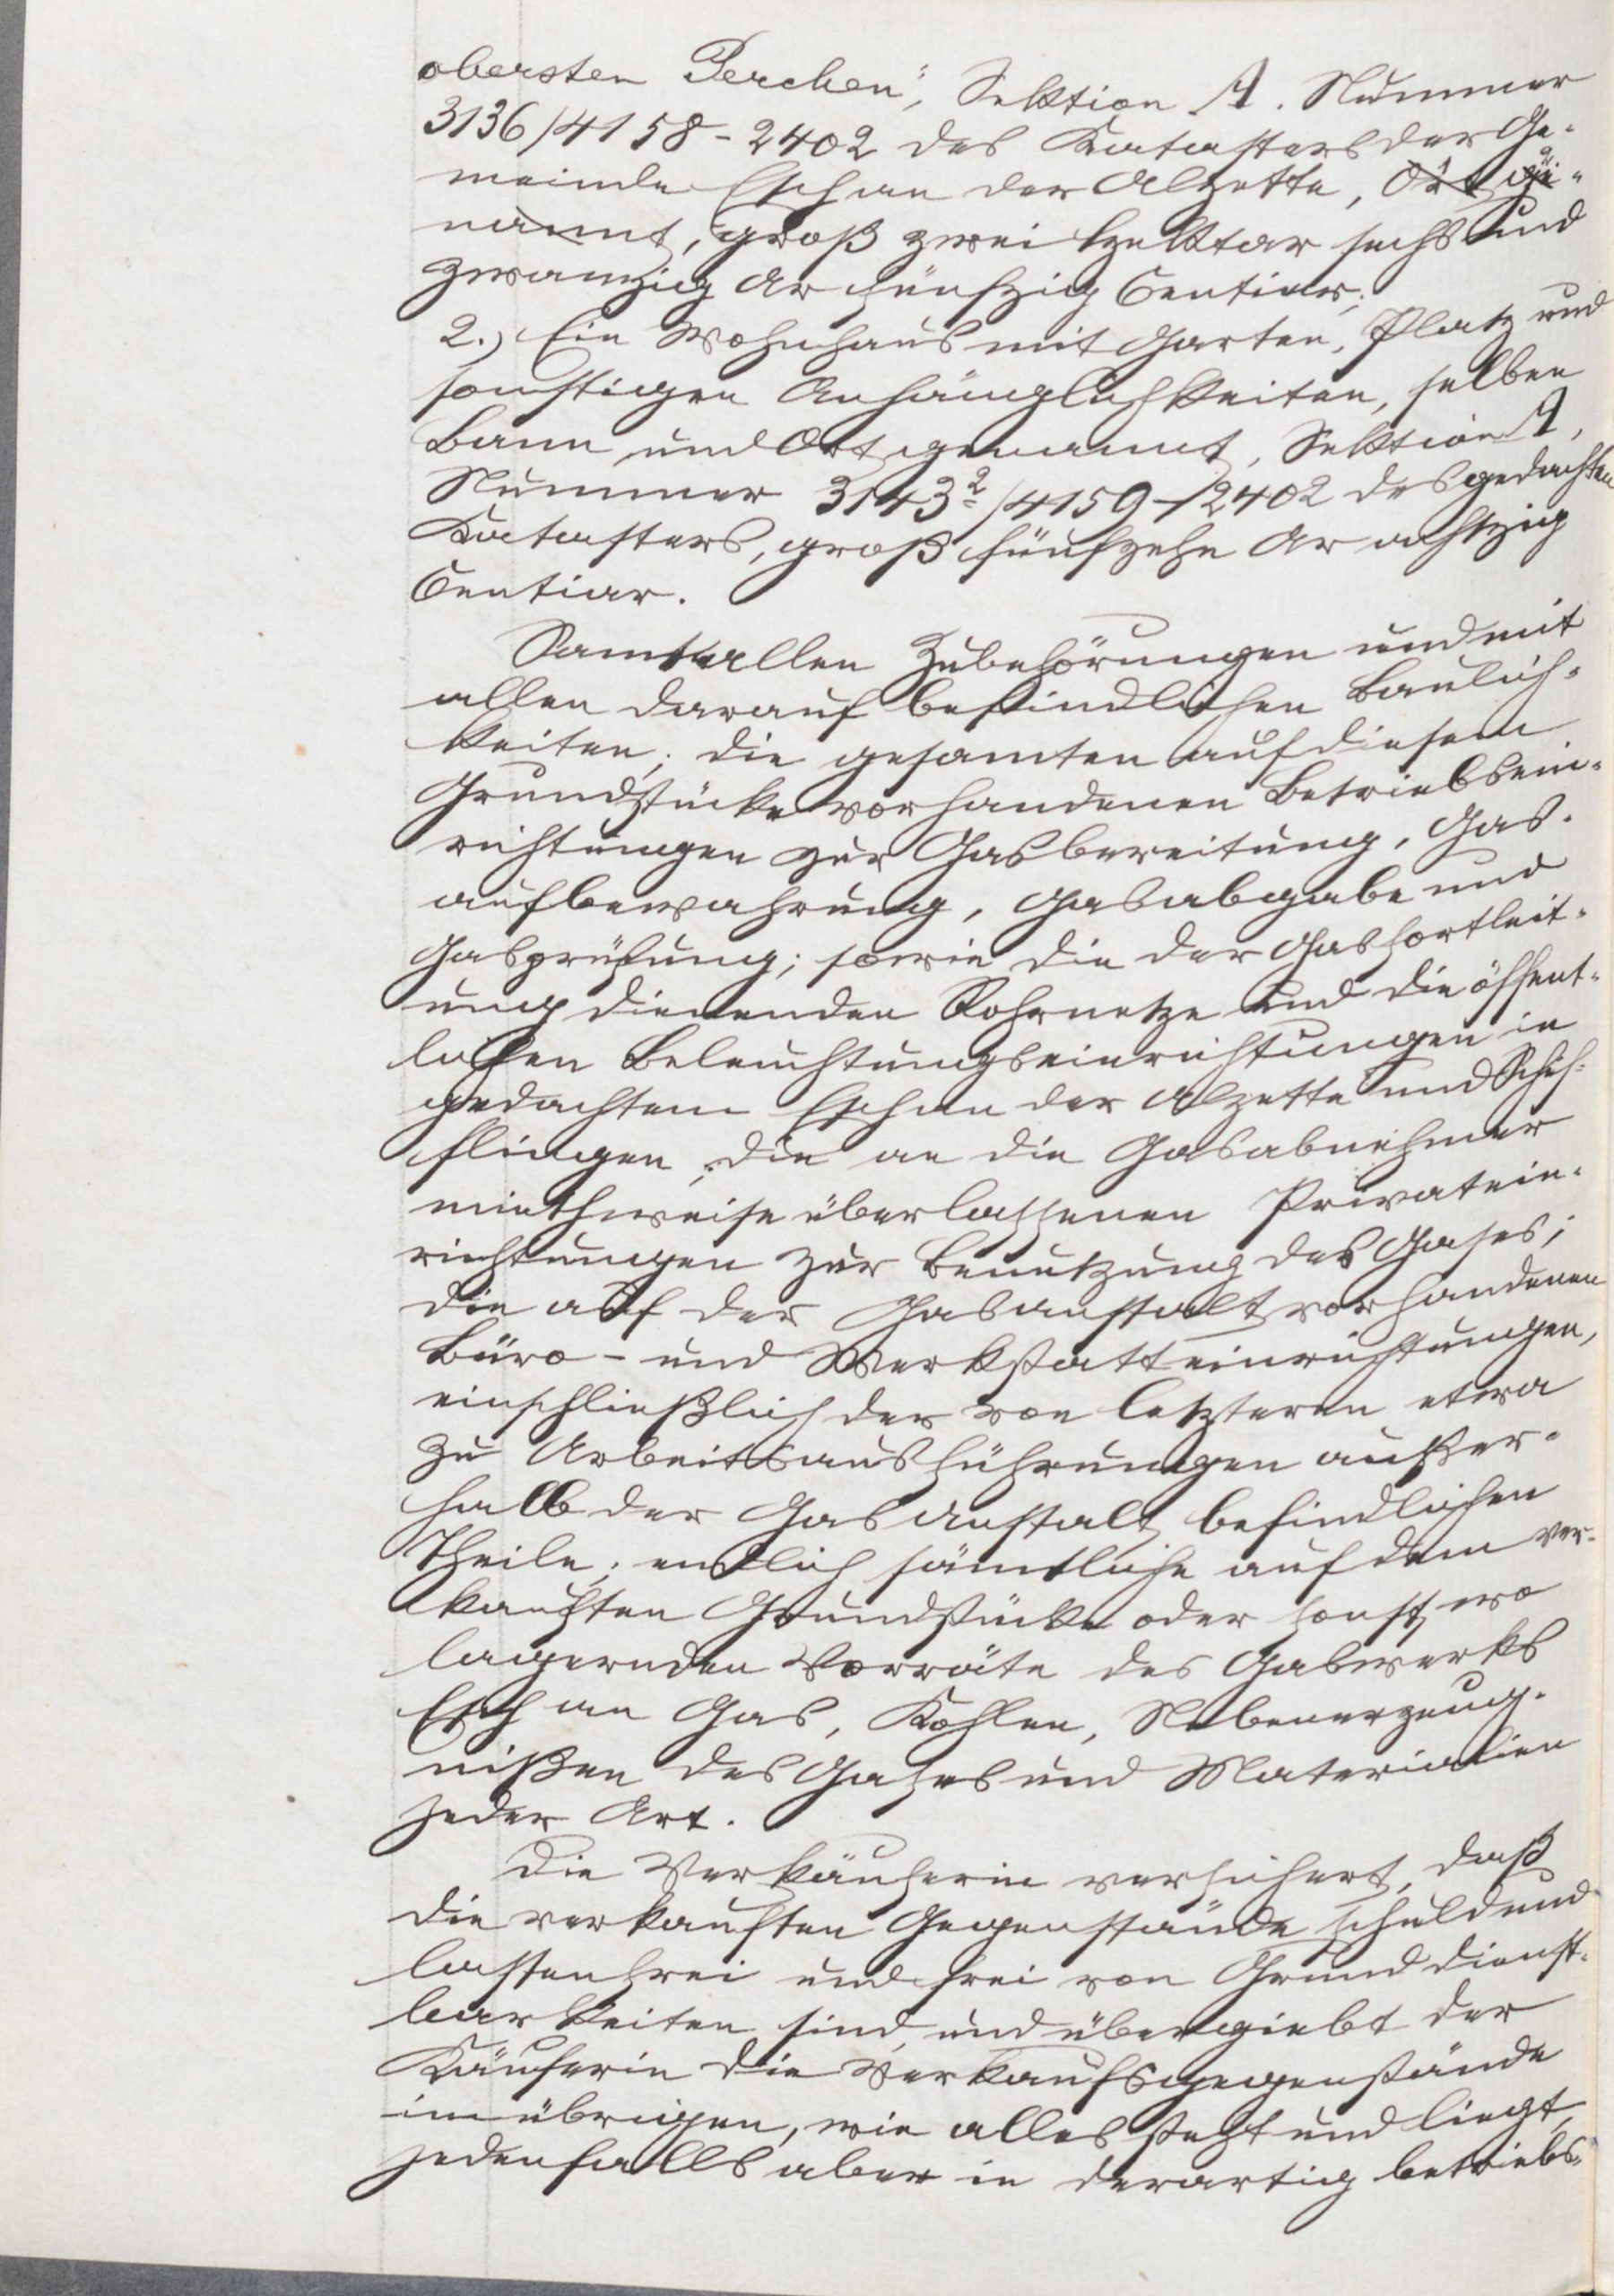 obersten Perchen", Sektion A. Nummer
3136/4158-2402 des Katasters der Ge-
meinde Esch an der Alzette, Ort ge-
nannt, groß zwei Hektar sechs und
zwanzig Ar fünfzig Centiar;
2.) Ein Wohnhaus mit Garten, Platz und
sonstigen Anhänglichkeiten, selben
Bann und Ort genannt, Sektion A,
Nummer 3143²/4159-/2402 des gedachten
Katasters, groß fünfzehn Ar achtzig
Centiar.
Samt allen Zubehörungen und mit
allen darauf befindlichen Baulich-
keiten; die gesamten auf diesem
Grundstücke vorhandenen Betriebsein-
richtungen zur Gasbereitung, Gas-
aufbewahrung, Gasabgabe und
Gasprüfung; sowie die der Gasfortleit-
ung dienenden Rohrnetze und die öffent-
lichen Beleuchtungseinrichtungen in
gedachtem Esch an der Alzette und Schif-
flingen; die an die Gasabnehmer
miethweise überlassenen Privatein-
richtungen zur Benutzung des Gases;
die auf der Gasanstalt vorhandenen
Büro- und Werkstatteinrichtungen,
einschließlich der von letzteren etwa
zu Arbeitsausführungen außer-
halb der Gasanstalt befindlichen
Theile; endlich sämtliche auf dem ver-
kauften Grundstücke oder sonst wo
lagernden Vorräte des Gaswerks
Esch an Gas, Kohlen, Nebenerzeug-
nißen des Gases und Materialien
jeder Art.
Die Verkäuferin versichert, daß
die verkauften Gegenstände schuld und
lastenfrei und frei von Grunddienst-
barkeiten sind und übergiebt der
Käuferin die Verkaufsgegenstände
im übrigen, wie alles steht und liegt,
jedenfalls aber in derartig betriebs-